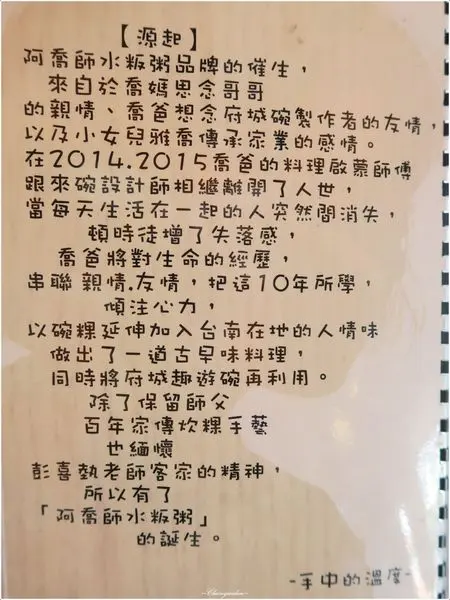 【源起】
阿喬師水粄粥品牌的催生，
來自於喬媽思念哥哥
的親情、喬爸想念府城碗製作者的友情，
以及小女兒雅喬傳承家業的感情。
在2014.2015喬爸的料理啟蒙師傅
跟來碗設計師相繼離開了人世，
當每天生活在一起的人突然間消失，
頓時徒增了失落感，
喬爸將對生命的經歷，
串聯親情.友情，把這10年所學，
傾注心力，
以碗粿延伸加入台南在地的人情味
做出了一道古早味料理，
同時將府城趣遊碗再利用。
除了保留師父
百年家傳炊粿手藝
也緬懷
彭喜執老師客家的精神，
所以有了
「阿喬師水粄粥」
的誕生。
-手中的溫度-